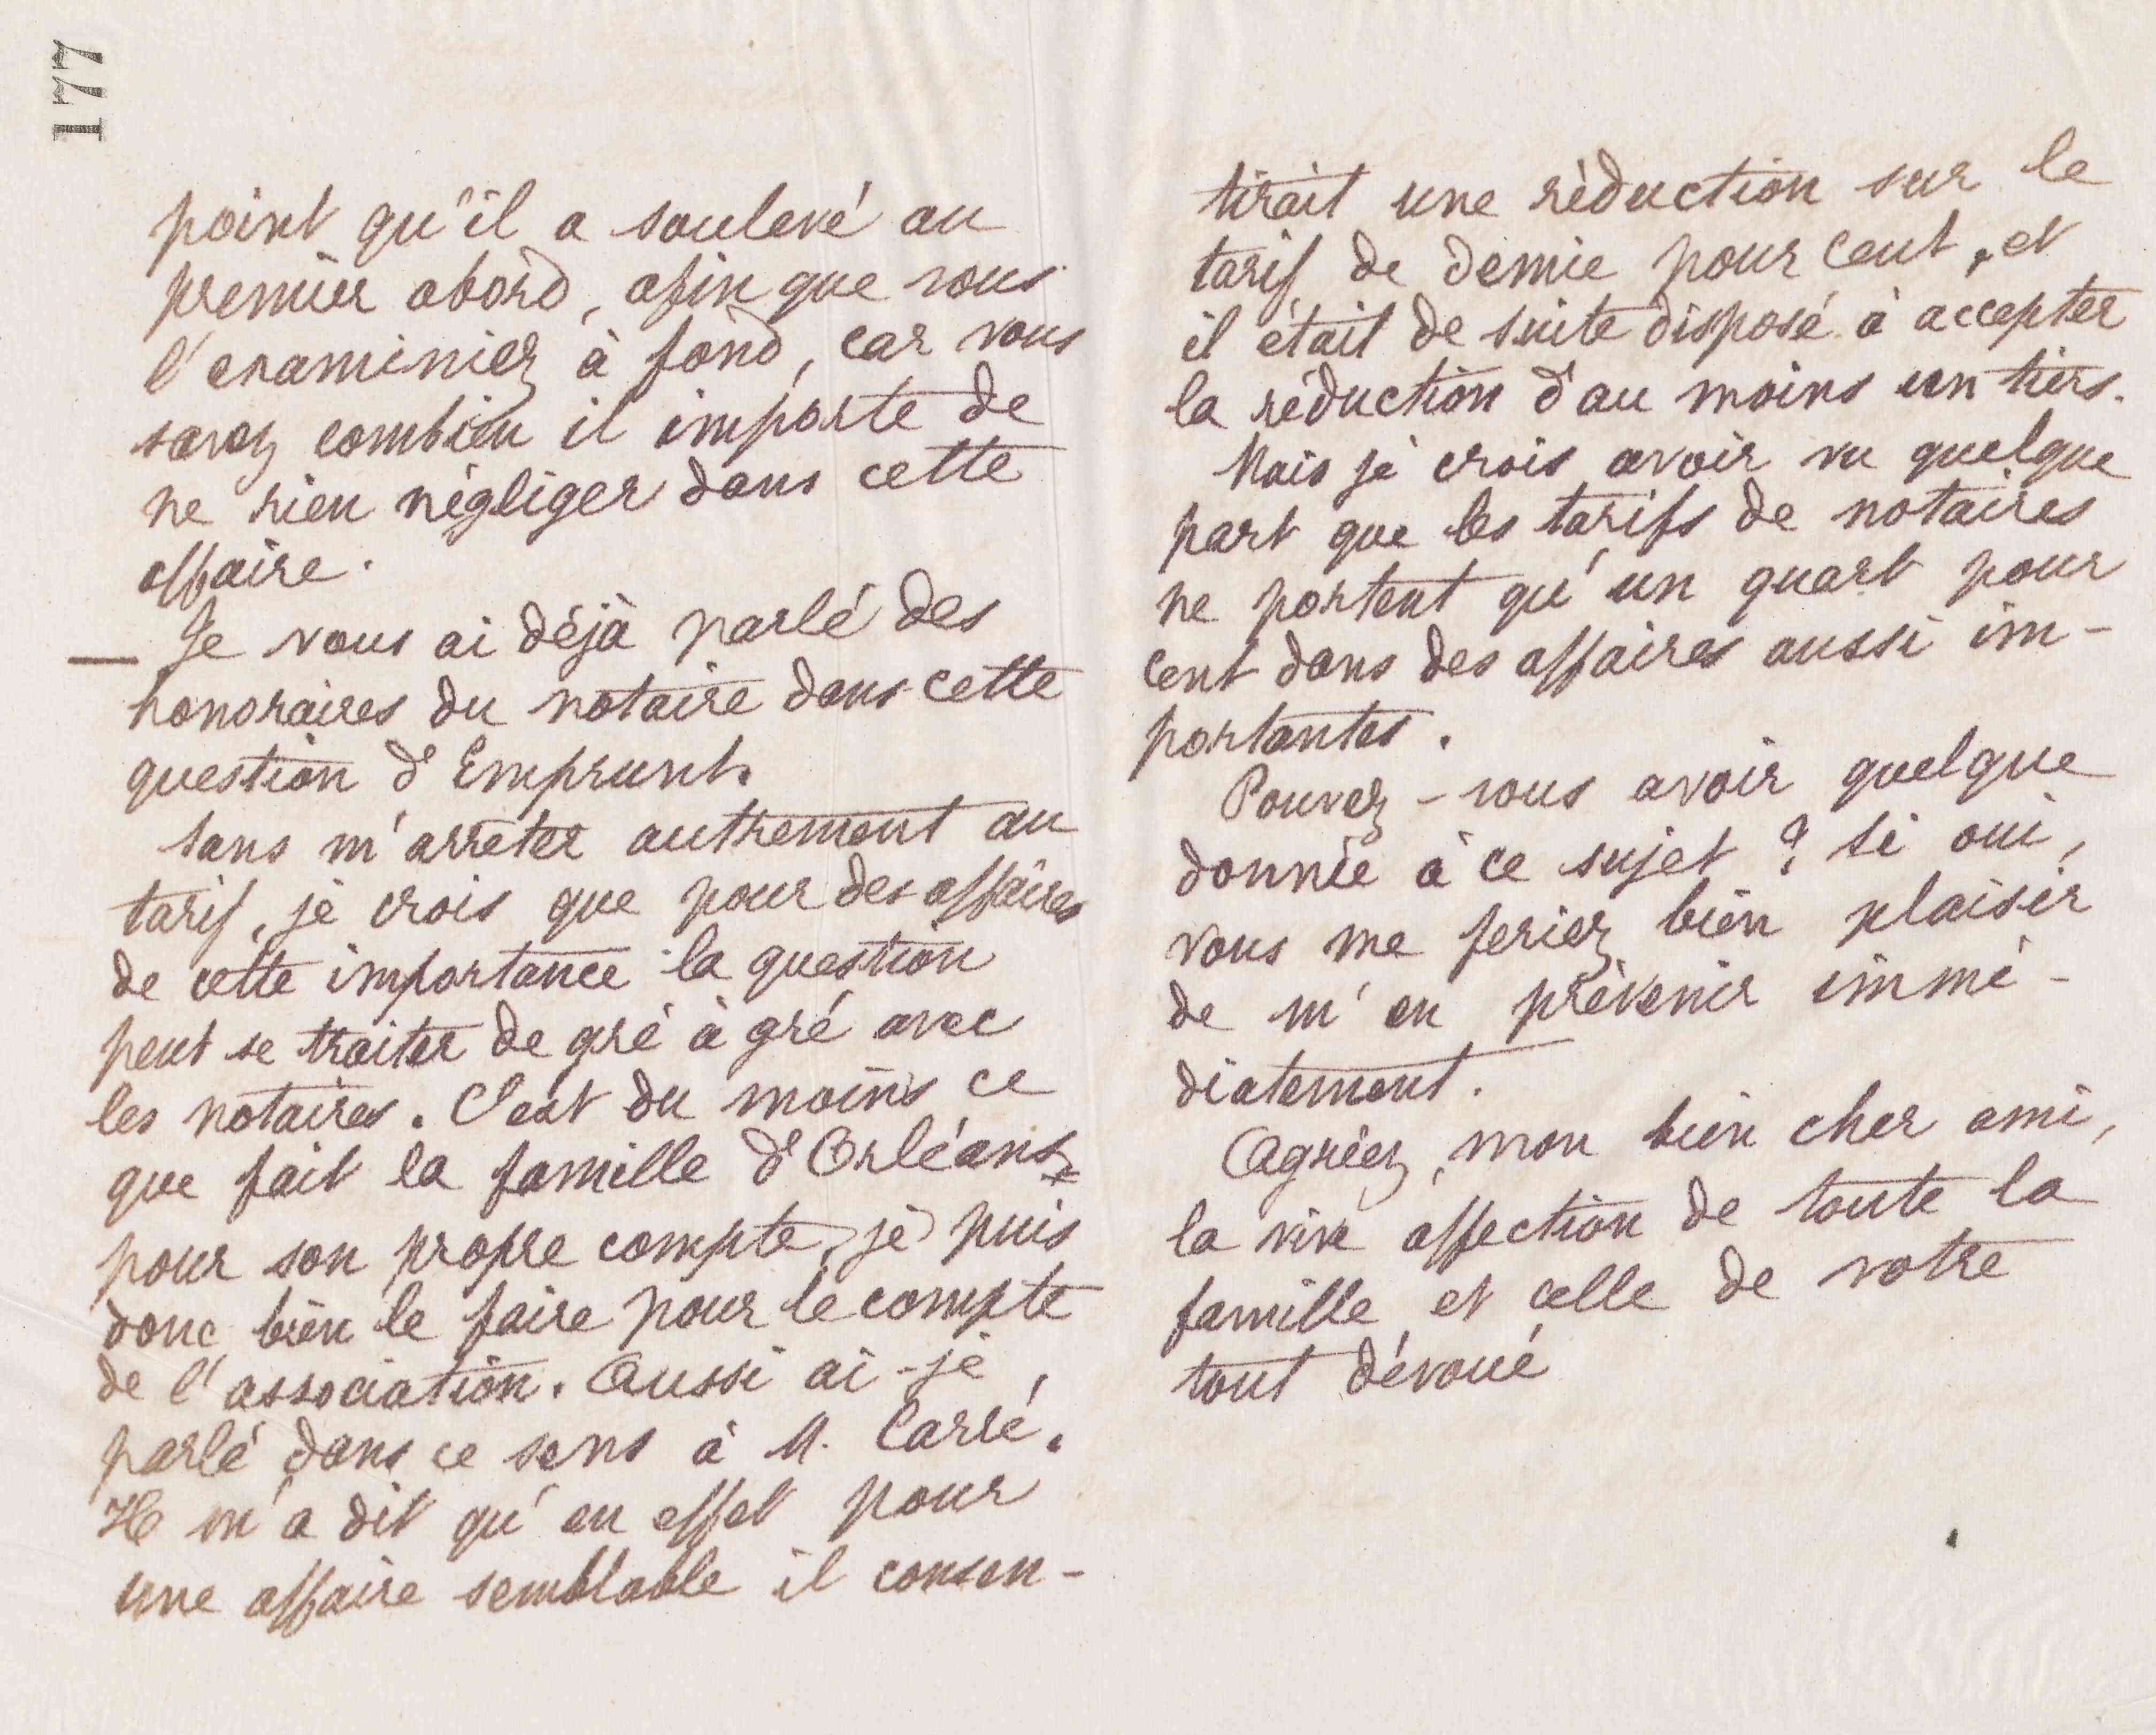 177
point qu'il a soulevé au
premier abord, afin que vous
l'examiniez à fond, car vous
savez combien il importe de
ne rien négliger dans cette
affaire.
— Je vous ai déjà parlé des
honoraires du notaire dans cette
question d'Emprunt.
Sans m'arrêter autrement au
tarif, je crois que pour des affaires
de cette importance la question
peut se traiter de gré à gré avec
les notaires. C'est du moins ce
que fait la famille d'Orléans
pour son propre compte, je puis
donc bien le faire pour le compte
de l'association. Aussi ai-je
parlé dans ce sens à M. Carré.
Il m'a dit qu'en effet pour
une affaire semblable il consen-
tirait une réduction sur le
tarif de demie pour cent, et
il était de suite disposé à accepter
la réduction d'au moins un tiers.
Mais je crois avoir vu quelque
part que les tarifs de notaires
ne portent qu'un quart pour
cent dans des affaires aussi im-
portantes.
Pouvez-vous avoir quelque
donnée à ce sujet ? Si oui,
vous me feriez bien plaisir
de m'en prévenir immé-
diatement.
Agréez, mon bien cher ami,
la vive affection de toute la
famille et celle de votre
tout dévoué